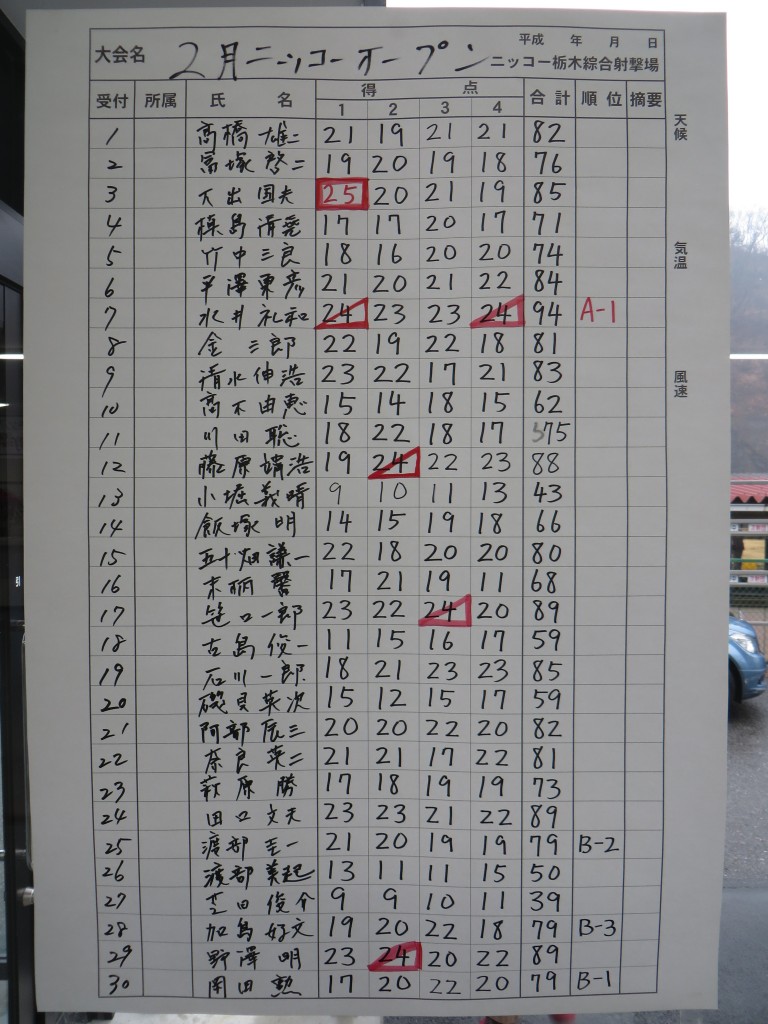 平成 年 月 日
大会名 2月ニッコーオープン ニッコー栃木綜合射撃場
受付 所属 氏 名 得 点 合計 順位 摘要
1 2 3 4
天候
気温
風速
1 高橋 雄二 21 19 21 21 82
2 冨塚 啓二 19 20 19 18 76
3 大出 国夫 25 20 21 19 85
4 椋島 清 17 17 20 17 71
5 竹中 三良 18 16 20 20 74
6 平澤 東彦 21 20 21 22 84
7 水井 礼和 24 23 23 24 94 A-1
8 金 三郎 22 19 22 18 81
9 清水 伸浩 23 22 17 21 83
10 高木 由恵 15 14 18 15 62
11 川田 聡 18 22 18 17 75
12 藤原 靖浩 19 24 22 23 88
13 小堀 義晴 9 10 11 13 43
14 飯塚 明 14 15 19 18 66
15 五十畑 謙一 22 18 20 20 80
16 末柄 馨 17 21 19 11 68
17 笹口 一郎 23 22 24 20 89
18 古島 俊一 11 15 16 17 59
19 石川 一郎 18 21 23 23 85
20 磯貝 英次 15 12 15 17 59
21 阿部 辰三 20 20 22 20 82
22 奈良 英二 21 21 17 22 81
23 萩原 勝 17 18 19 19 73
24 田口 文夫 23 23 21 22 89
25 渡部 圭一 21 20 19 19 79 B-2
26 渡部 美起 13 11 11 15 50
27 芝田 俊介 9 9 10 11 39
28 加島 好文 19 20 22 18 79 B-3
29 野澤 明 23 24 20 22 89
30 岡田 勲 17 20 22 20 79 B-1